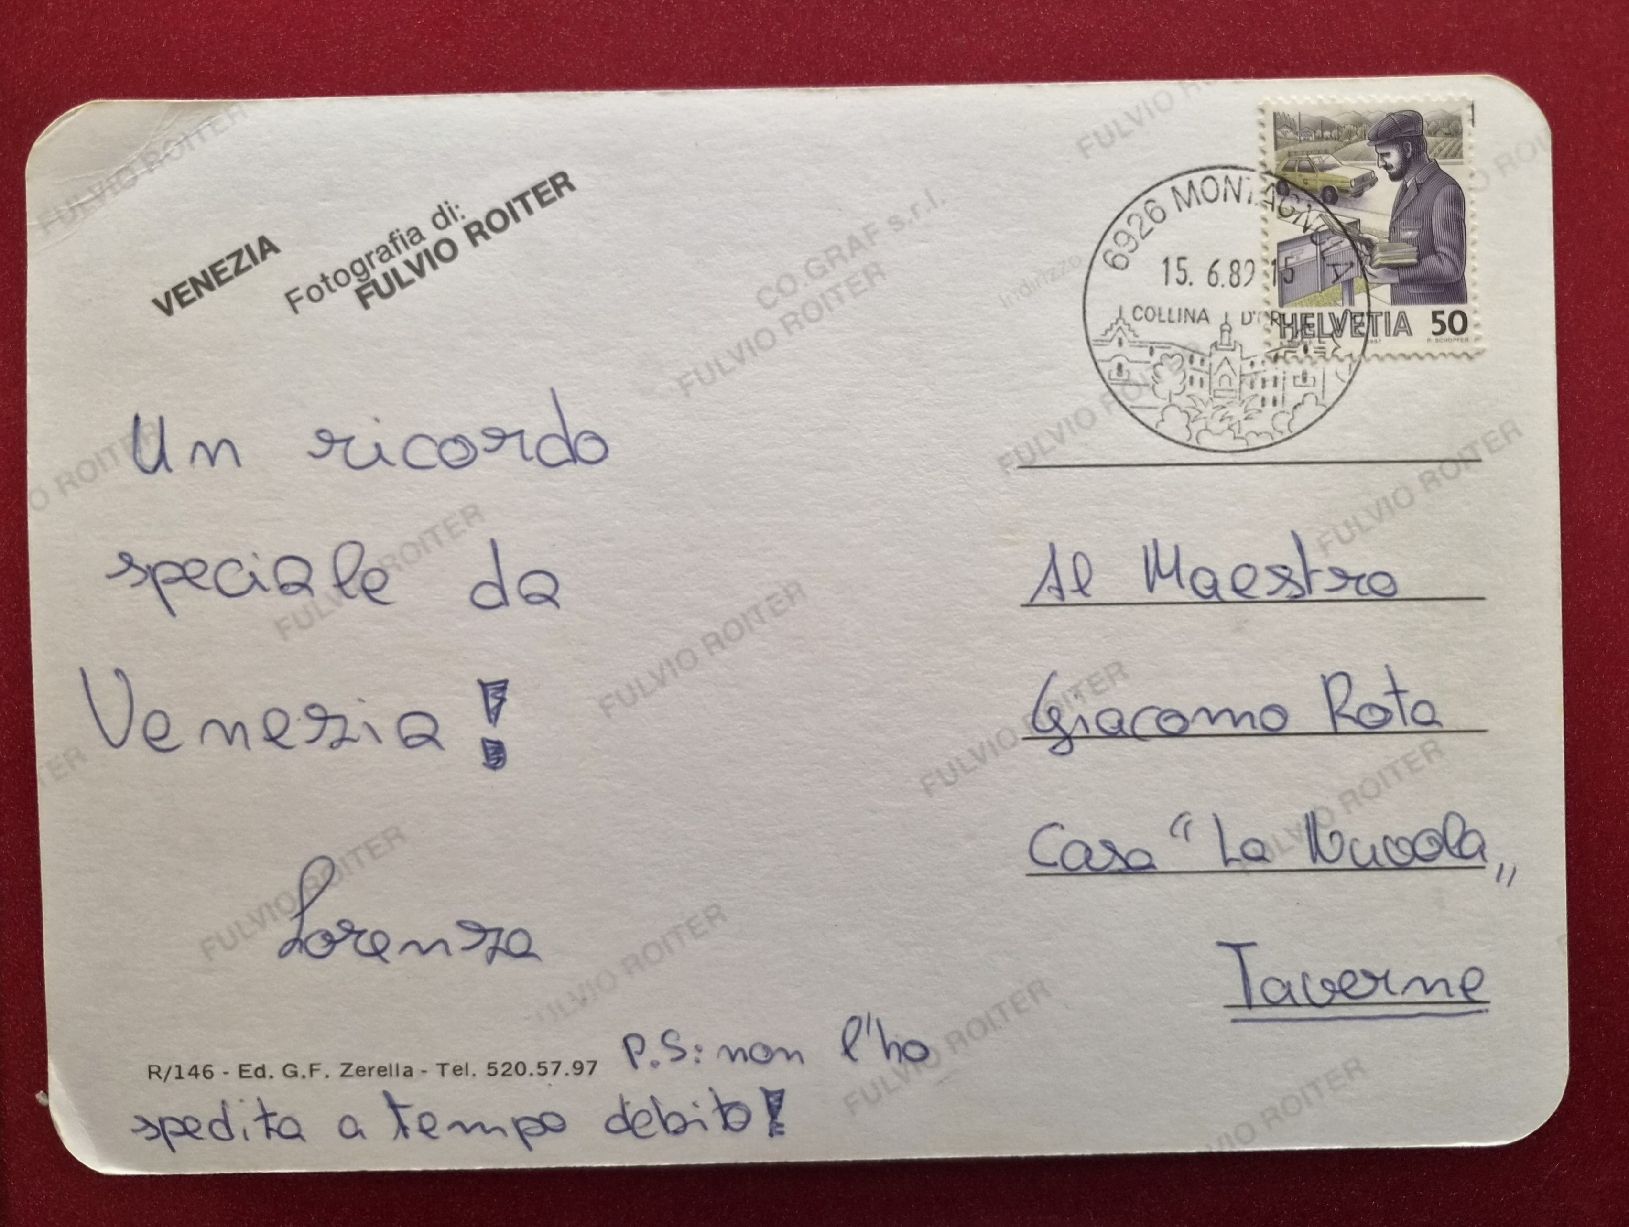 VENEZIA
Fotografia di:
FULVIO ROITER
CO GRAF s.r.l.
FULVIO ROITER
Indirizzo
6926 MONTAGNOLA
15. 6.89 15
COLLINA D'OR
HELVETIA 50
P. SCHOPFER
Un ricordo
speciale da
Venezia!
Lorenza
P.S: non l'ho
spedita a tempo debito!
R/146 - Ed. G.F. Zerella - Tel. 520.57.97
Al Maestro
Giacomo Rota
Casa "La Nuvola„
Taverne